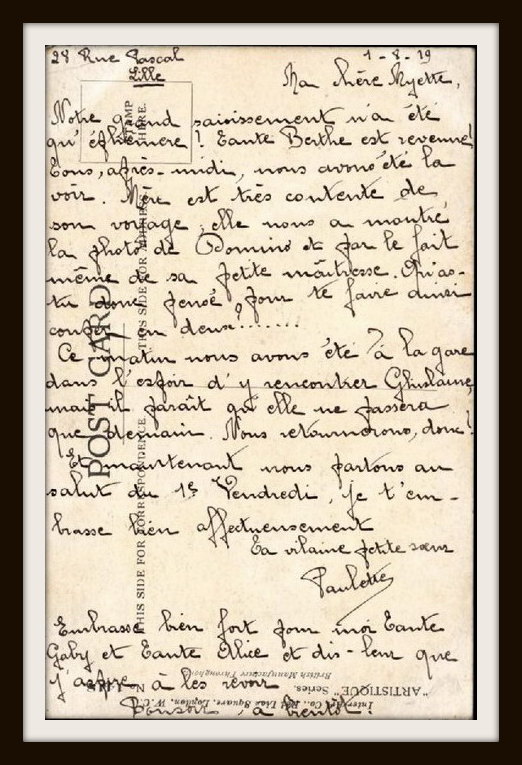 28 Rue Pascal
Lille
1-8-19
Ma chère Myette,
Notre grand saisissement n'a été
qu'éphémère! Tante Berthe est revenue!
Tous, après-midi, nous avons été la
voir. Mère est très contente de
son voyage, elle nous a montré
la photo de Domino et par le fait
même de sa petite maîtresse. Qu'as-
tu donc pensé, pour te faire ainsi
couper en deux.......?
Ce matin nous avons été à la gare
dans l'espoir d'y rencontrer Ghislaine,
mais il paraît qu'elle ne passera
que demain. Nous retournerons, donc!
Et maintenant nous partons au
salut du 1er Vendredi, je t'em-
brasse bien affectueusement
Ta vilaine petite sœur
Paulette
Embrasse bien fort pour moi Tante
Gaby et Tante Alice et dis-leur que
j'aspire à les revoir
Bonsoir, à bientôt!
POST CARD
STAMP
HERE.
THIS SIDE FOR ADDRESS
THIS SIDE FOR CORRESPONDENCE.
"ARTISTIQUE" Series.
British Manufacture Throughout
Co., Red Lion Square, London, W.C.